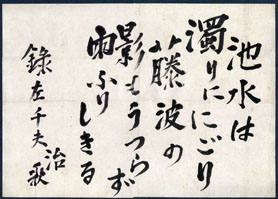 池水は
濁りににごり
藤波の
影もうつらず
雨ふり
しきる
録左千夫
治歌